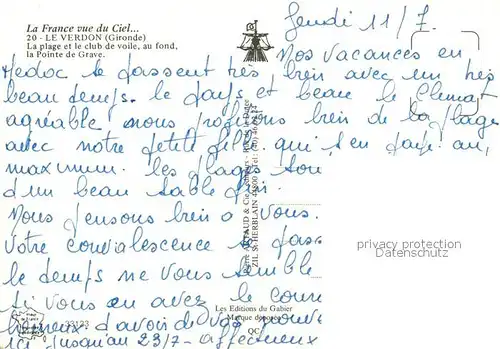 La France vue du Ciel...
20 - LE VERDON (Gironde)
La plage et le club de voile, au fond,
la Pointe de Grave.
Jeudi 11/7.
Nos vacances en
Medoc se passent très bien avec un très
beau temps. le pays et beau le Climat
agréable nous profitons bien de la plage
avec notre petite fille qui s'en paye au
maximum. les plages son
d'un beau sable fin.
Nous pensons bien a vous.
votre convalescence se passe
le temps ne vous semble
si vous en avez le
d'avoir de vos
ici jusqu'au 23/7- affectueux
ZIL St HERBLAIN
Les Editions du Gabier
Marque déposée
QC
privacy protection
Datenschutz